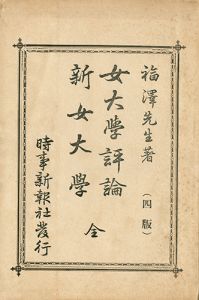 福澤先生著
(四版)
女大学評論
新女大学
全
時事新報社發行